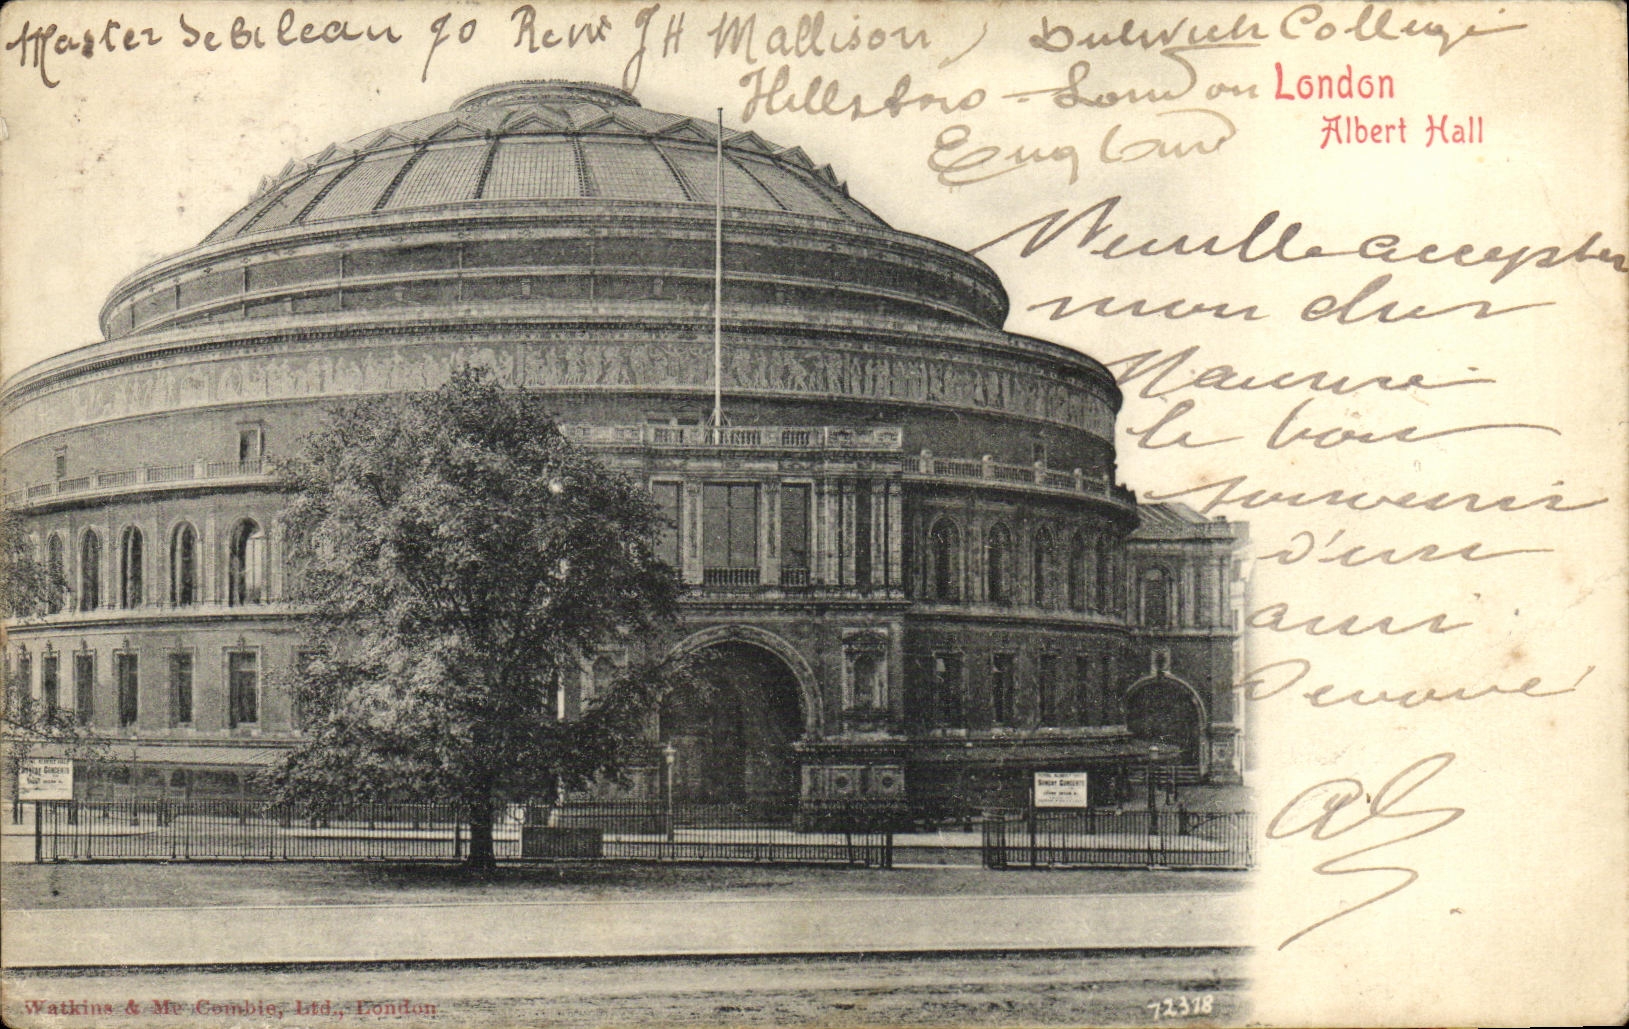 Master de Bilean c/o Revd J H Mallison, Dulwich College
Hillsboro - London
England
London
Albert Hall
Veuille accepter
mon cher
Maurice
le bon
souvenir
d'un
ami
Devoué
SUNDAY CONCERTS
SUNDAY CONCERTS
Watkins & Mc Combie, Ltd., London
72318